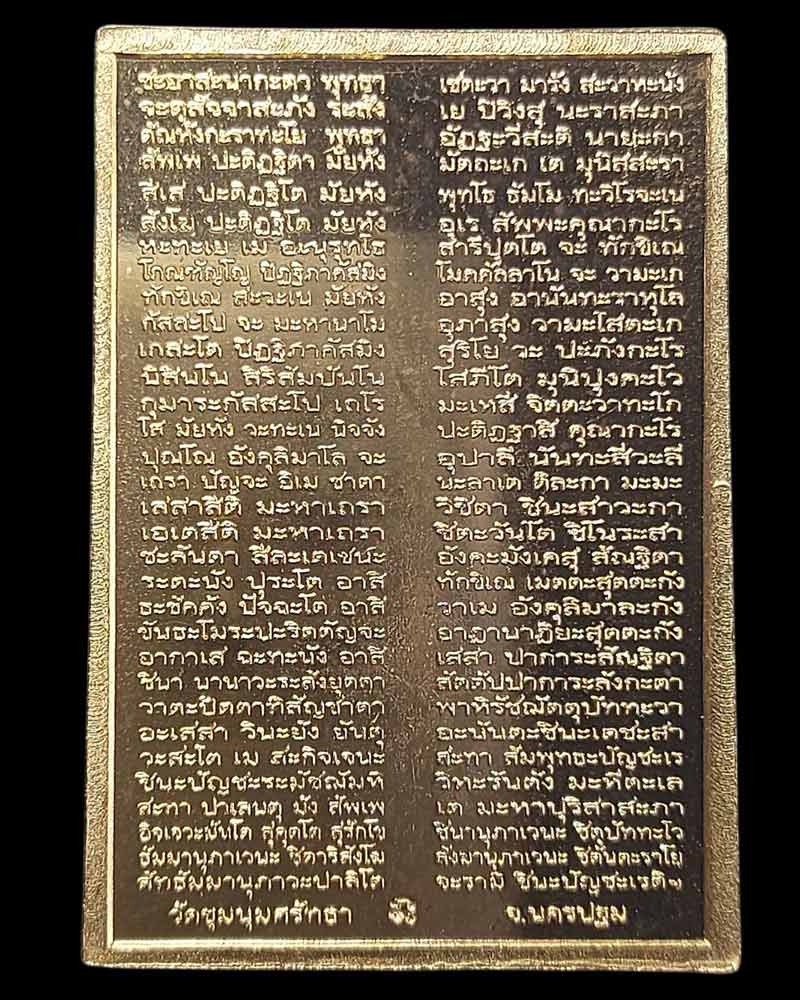 ชะยาสะนากะตา พุทธา เชตะวา มารัง สะวาหะนัง
จะตุสัจจาสะภัง ระสัง เย ปิวิงสุ นะราสะภา
ตัณหังกะราทะโย พุทธา อัฏฐะวีสะติ นายะกา
สัพเพ ปะติฏฐิตา มัยหัง มัตถะเก เต มุนิสสะรา
สีเส ปะติฏฐิโต มัยหัง พุทโธ ธัมโม ทะวิโรจะเน
สังโฆ ปะติฏฐิโต มัยหัง อุเร สัพพะคุณากะโร
หะทะเย เม อะนุรุทโธ สารีปุตโต จะ ทักขิเณ
โกณฑัญโญ ปิฏฐิภาคัสมิง โมคคัลลาโน จะ วามะเก
ทักขิเณ สะวะเน มัยหัง อาสุง อานันทะราหุโล
กัสสะโป จะ มะหานาโม อุภาสุง วามะโสตะเก
เกสะโต ปิฏฐิภาคัสมิง สุริโย วะ ปะภังกะโร
นิสินโน สิริสัมปันโน โสภีโต มุนิปุงคะโว
กุมาระกัสสะโป เถโร มะเหสี จิตตะวาทะโก
โส มัยหัง วะทะเน นิจจัง ปะติฏฐาสิ คุณากะโร
ปุณโณ อังคุลิมาโล จะ อุปาลี นันทะสีวะลี
เถรา ปัญจะ อิเม ชาตา นะลาเต ตีละกา มะมะ
เสสาสีติ มะหาเถรา วิชิตา ชินะสาวะกา
เอเตสีติ มะหาเถรา ชิตะวันโต ชิโนระสา
ชะลันตา สีละเตเชนะ อังคะมังเคสุ สัณฐิตา
ระตะนัง ปุระโต อาสิ ทักขิเณ เมตตะสุตตะกัง
ธะชัคคัง ปัจฉะโต อาสิ วาเม อังคุลิมาละกัง
ขันธะโมระปะริตตัญจะ อาฏานาฏิยะสุตตะกัง
อากาเส ฉะทะนัง อาสิ เสสา ปาการะสัณฐิตา
ชินา นานาวะระสังยุตตา สัตตัปปาการะลังกะตา
วาตะปิตตาทิสัญชาตา พาหิรัชฌัตตุปัททะวา
อะเสสา วินะยัง ยันตุ อะนันตะชินะเตชะสา
วะสะโต เม สะกิจเจนะ สะทา สัมพุทธะปัญชะเร
ชินะปัญชะระมัชฌัมหิ วิหะรันตัง มะหีตะเล
สะทา ปาเลนตุ มัง สัพเพ เต มะหาปุริสาสะภา
อิจเจวะมันโต สุคุตโต สุรักโข ชินานุภาเวนะ ชิตุปัททะโว
ธัมมานุภาเวนะ ชิตาริสังโฆ สังฆานุภาเวนะ ชิตันตะราโย
สัทธัมมานุภาวะปาลิโต จะรามิ ชินะปัญชะเรติฯ
วัดชุมนุมศรัทธา จ.นครปฐม